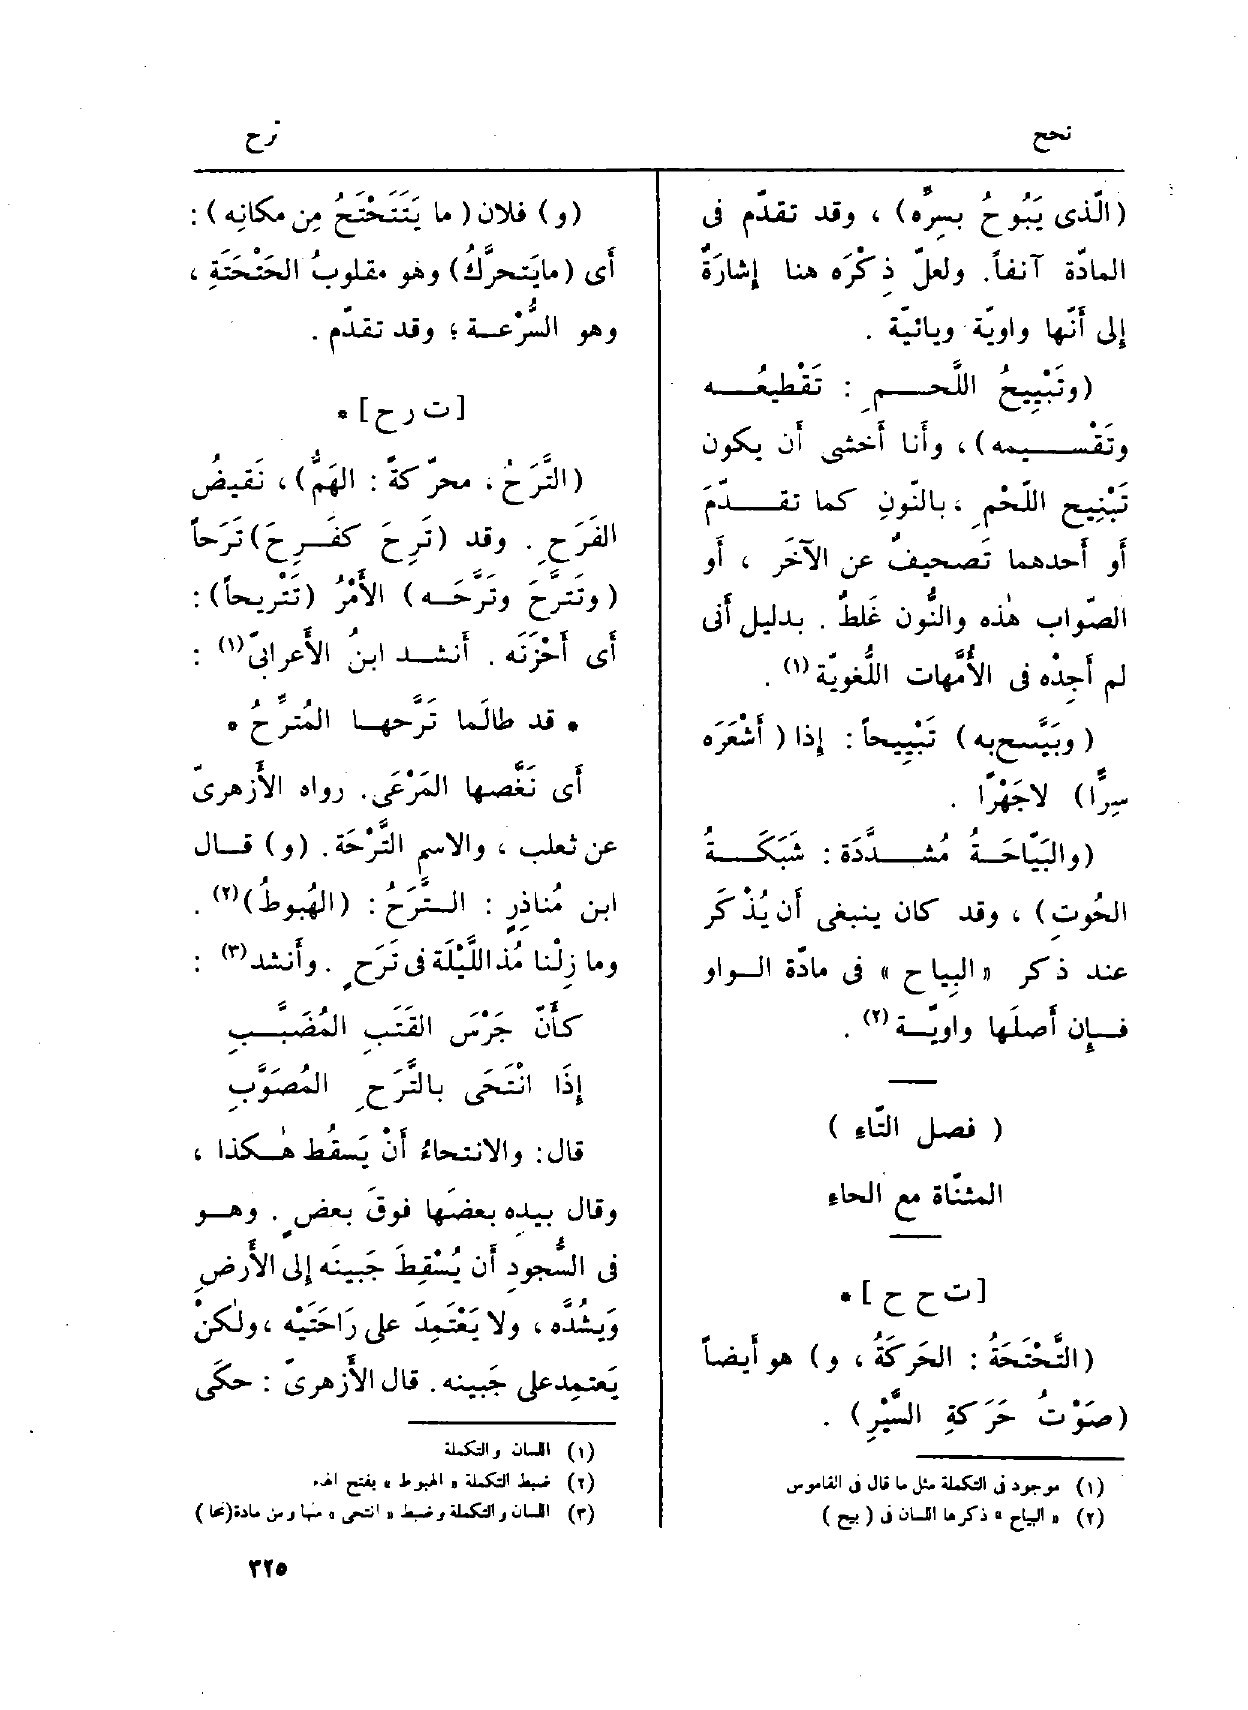 تحح
ترح
(الّذى يَبُوح بسِرِّه) ، وقد تقدّم فى
المادّة آنفاً. ولعلّ ذِكْرَه هنا إشارَةٌ
إلى أَنّها واويّة ويائيّة .
(وتَبْيِيحُ اللَّحـم : تَقْطيعُـه
وتَقْـسيمه) ، وأَنا أَخشى أَن يكون
تَبْنِيح اللّحْم ، بالنّونِ كما تقـدّمَ
أَو أَحدهما تَصحيفٌ عن الآخَر ، أَو
الصّواب هٰذه والنُّون غَلطٌ . بدليل أَنى
لم أَجِدْه فى الأُمّهات اللُّغويّة (١) .
(وبَيَّـح به) تَبْيِيحاً : إذا (أَشْعَرَه
سِرًّا) لاجَهْرًا .
(والبَيّاحَـةُ مُشـدَّدَة : شَبَكَـةُ
الحُوتِ) ، وقد كان ينبغى أَن يُذْكَر
عند ذكر « البِياح » فى مادّة الـواو
فـإِن أَصلَها واويّـة (٢) .
( فصل التّاء )
المثنّاة مع الحاء
[ت ح ح] *
(التَّحْتَحَةُ : الحَركَةُ ، و) هو أَيضاً
(صَوْتُ حَرَكةِ السَّيْرِ) .
(١) موجود فى التكملة مثل ما قال فى القاموس
(٢) « البياح » ذكرها اللسان فى (بيح)
(و) فلان (ما يَتَتَحْتَحُ مِن مكانِه) :
أَى (مايَتحرَّكُ) وهو مقلوبُ الحَتْحَتَةِ ،
وهو السُّرْعـة ؛ وقد تقدّم .
[ت ر ح] *
(التَّرَحُ ، محرّكةً : الهَمُّ) ، نَقيضُ
الفَرَحِ . وقد (تَرِحَ كفَـرِحَ) تَرَحاً
(وتَترَّحَ وتَرَّحَـه) الأَمْرُ (تَتْريحاً) :
أَى أَحْزَنَه . أَنشـد ابنُ الأَعرابىّ(١) :
* قد طالَما تَرَّحهـا المُترِّحُ *
أَى نَغَّصها المَرْعَى. رواه الأَزهرىّ
عن ثعلب ، والاسم التَّرْحَة. (و) قـال
ابن مُناذِرٍ : الـتَّرَحُ : (الهُبوطُ)(٢) .
وما زِلْنا مُذ اللَّيْلَة فى تَرَحٍ . وأَنشد(٣) :
كأَنّ جَرْسَ القَتَبِ المُضَبَّـبِ
إِذَا انْتَحَى بالتَّرَحِ المُصَوَّبِ
قال : والانتحاءُ أَنْ يَسقُط هٰـكذا ،
وقال بيدِه بعضَها فوقَ بعضٍ . وهـو
فى السُّجودِ أَن يُسْقِطَ جَبينَه إلى الأَرضِ
وَيشُدَّه ، ولا يَعْتَمِدَ على رَاحَتَيْه ، ولٰكنْ
يَعتمِد على جَبينه . قال الأَزهرىّ : حكَى
(١) اللسان والتكملة
(٢) ضبط التكملة « الهبوط » بفتح الهاء
(٣) اللسان والتكملة وضبط « انتحى » منها ومن مادة (نحا)
٣٢٥